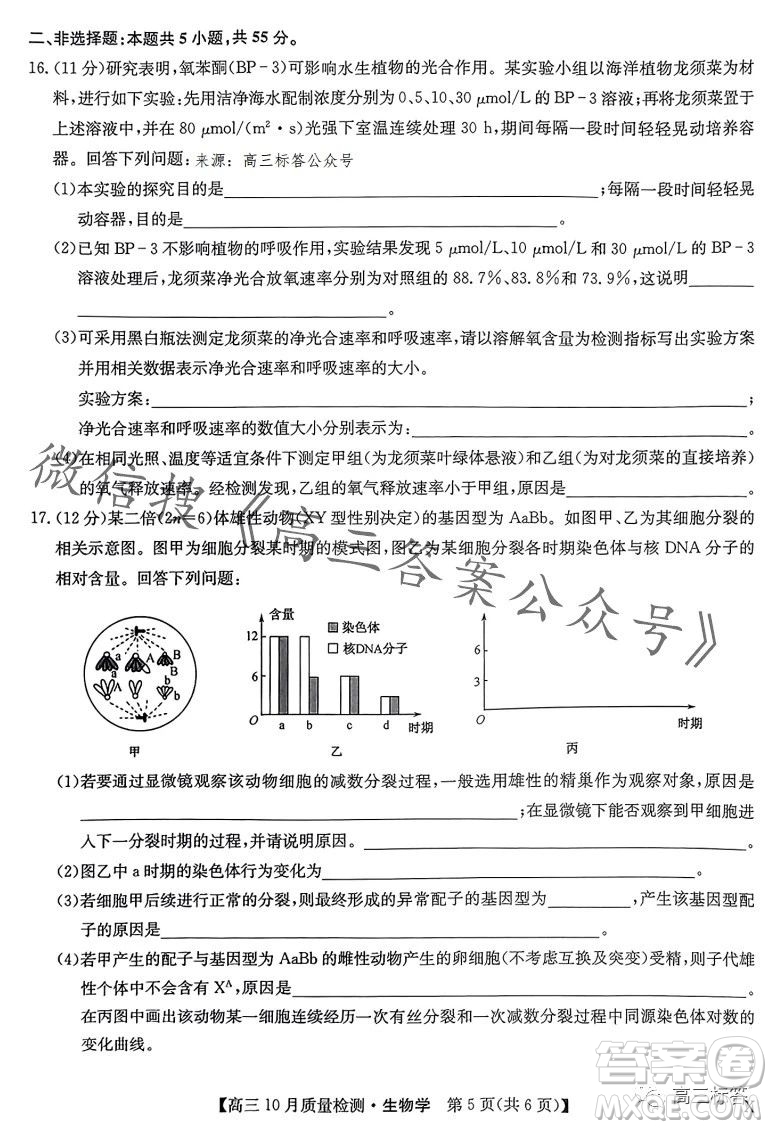 二、非选择题:本题共5小题,共55分。
16.(11分)研究表明,氧苯酮(BP-3)可影响水生植物的光合作用。某实验小组以海洋植物龙须菜为材
料,进行如下实验:先用洁净海水配制浓度分别为0、5、10、30 μmol/L的BP-3溶液;再将龙须菜置于
上述溶液中,并在80 μmol/(m²·s)光强下室温连续处理30 h,期间每隔一段时间轻轻晃动培养容
器。回答下列问题:来源:高三标答公众号
(1)本实验的探究目的是;每隔一段时间轻轻晃
动容器,目的是。
(2)已知BP-3不影响植物的呼吸作用,实验结果发现5 μmol/L、10 μmol/L和30 μmol/L BP-3
溶液处理后,龙须菜净光合放氧速率分别为对照组的88.7%、83.8%和73.9%,这说明
。
(3)可采用黑白瓶法测定龙须菜净光合速率和呼吸速率,请以溶解氧含量为检测指标写出实验方案
并用相关数据表示净光合速率和呼吸速率的大小。
实验方案:;
净光合速率和呼吸速率的数值大小分别表示为:。
(4)在相同光照、温度等适宜条件下测定甲组(为龙须菜叶绿体悬液)和乙组(为对龙须菜的直接培养)
的氧气释放速率。经检测发现,乙组的氧气释放速率小于甲组,原因是。
17.(12分)某二倍(2n=6)体雄性动物(XY型性别决定)的基因型为AaBb。如图甲、乙为其细胞分裂的
相关示意图。图甲为细胞分裂某时期的模式图,图乙为某细胞分裂各时期染色体与核DNA分子的
相对含量。回答下列问题:
a A B B
a A b b
甲
含量
12
6
O
a b c d 时期
染色体
核DNA分子
乙
6
3
O
时期
丙
(1)若要通过显微镜观察该动物细胞的减数分裂过程,一般选用雄性的精巢作为观察对象,原因是
;在显微镜下能否观察到甲细胞进
入下一分裂时期的过程,并请说明原因。。
(2)图乙中a时期的染色体行为变化为。
(3)若细胞甲后续进行正常的分裂,其最终形成的异常配子的基因型为,产生该基因型配
子的原因是。
(4)若甲产生的配子与基因型为AaBb的雌性动物产生的卵细胞(不考虑互换及突变)受精,则子代雄
性个体中不会出现Xᴬ,原因是。
在丙图中画出该动物某一细胞连续经历一次有丝分裂和一次减数分裂过程中同源染色体对数的
变化曲线。
【高三10月质量检测·生物学 第5页(共6页)】
微信搜《高三答案公众号》
答案卷
高三标答